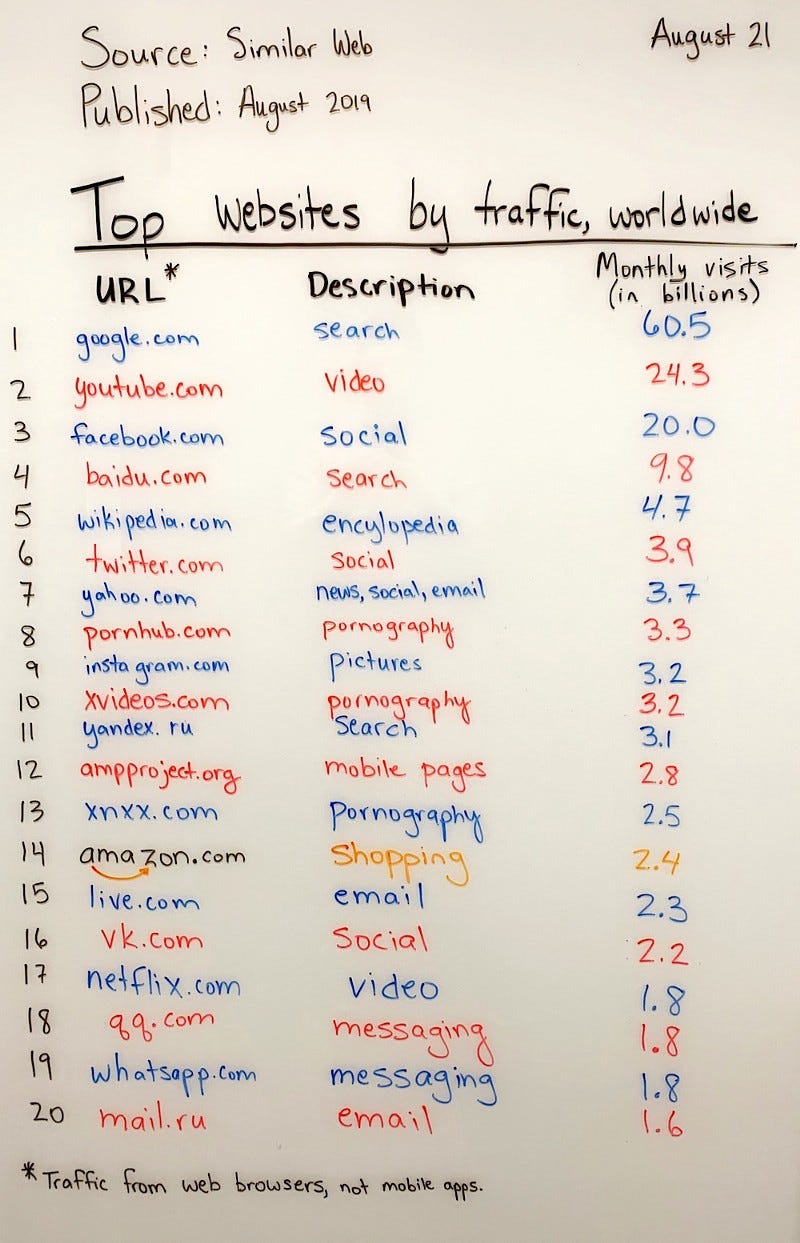 Source: Similar Web August 21
Published: August 2019
Top Websites by traffic, worldwide
URL* Description Monthly visits (in billions)
1 google.com search 60.5
2 youtube.com video 24.3
3 facebook.com social 20.0
4 baidu.com search 9.8
5 wikipedia.com encylopedia 4.7
6 twitter.com social 3.9
7 yahoo.com news, social, email 3.7
8 pornhub.com pornography 3.3
9 instagram.com pictures 3.2
10 xvideos.com pornography 3.2
11 yandex.ru Search 3.1
12 ampproject.org mobile pages 2.8
13 xnxx.com Pornography 2.5
14 amazon.com Shopping 2.4
15 live.com email 2.3
16 vk.com Social 2.2
17 netflix.com video 1.8
18 qq.com messaging 1.8
19 whatsapp.com messaging 1.8
20 mail.ru email 1.6
*Traffic from web browsers, not mobile apps.